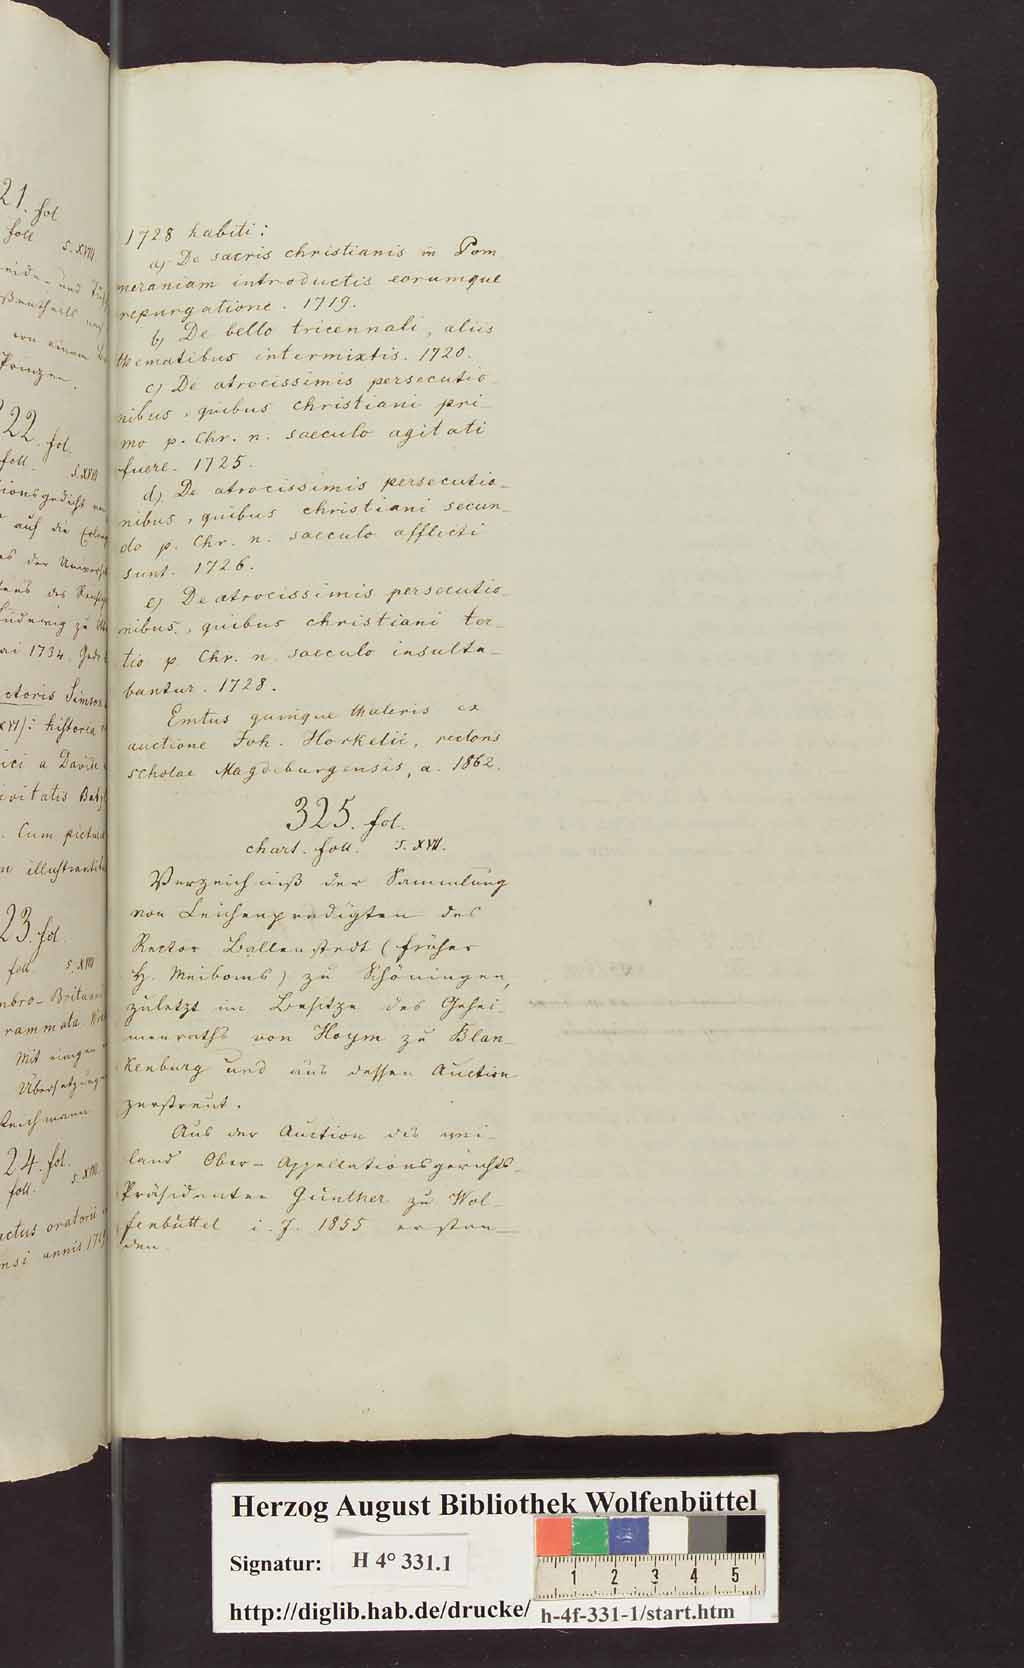 21. fol
foll s. XVIII
von einem
Prinzen.
22. fol.
foll. s. XVIII
auf die
der
des
Ludewig zu
1734.
Simson
historia
a Davide
Cum
illustrantibus
23. fol
foll s. XVIII
Mit einigen
Übersetzung
Reichmann
24. fol.
foll. s. XVIII
actus oratorii
annis
1728 habiti:
a) De sacris christianis in Pom
meraniam introductis eorumque
repurgatione. 1719.
b) De bello tricennali, aliis
thematibus intermixtis. 1720.
c) De atrocissimis persecutio-
nibus, quibus christiani pri-
mo p. Chr. n. saeculo agitati
fuere. 1725.
d) De atrocissimis persecutio-
nibus, quibus christiani secun-
do p. Chr. n. saeculo afflicti
sunt. 1726.
e) De atrocissimis persecutio-
nibus, quibus christiani ter-
tio p. Chr. n. saeculo insulta-
bantur. 1728.
Emtus quinque thaleris ex
auctione Joh. Horkelii, rectoris
scholae Magdeburgensis, a. 1862.
325. fol.
chart. foll. s. XVII.
Verzeichniß der Sammlung
von Leichenpredigten des
Rector Ballenstedt (früher
H. Meiboms) zu Schöningen,
zuletzt im Besitze des Gehei-
menraths von Hoym zu Blan-
kenburg und aus dessen Auction
zerstreut.
Aus der Auction des wei-
land Ober-Appellationsgerichts-
Präsidenten Günther zu Wol-
fenbüttel i. J. 1855 erstan-
den.
Herzog August Bibliothek Wolfenbüttel
Signatur: H 4° 331.1
1 2 3 4 5
http://diglib.hab.de/drucke/ h-4f-331-1/start.htm